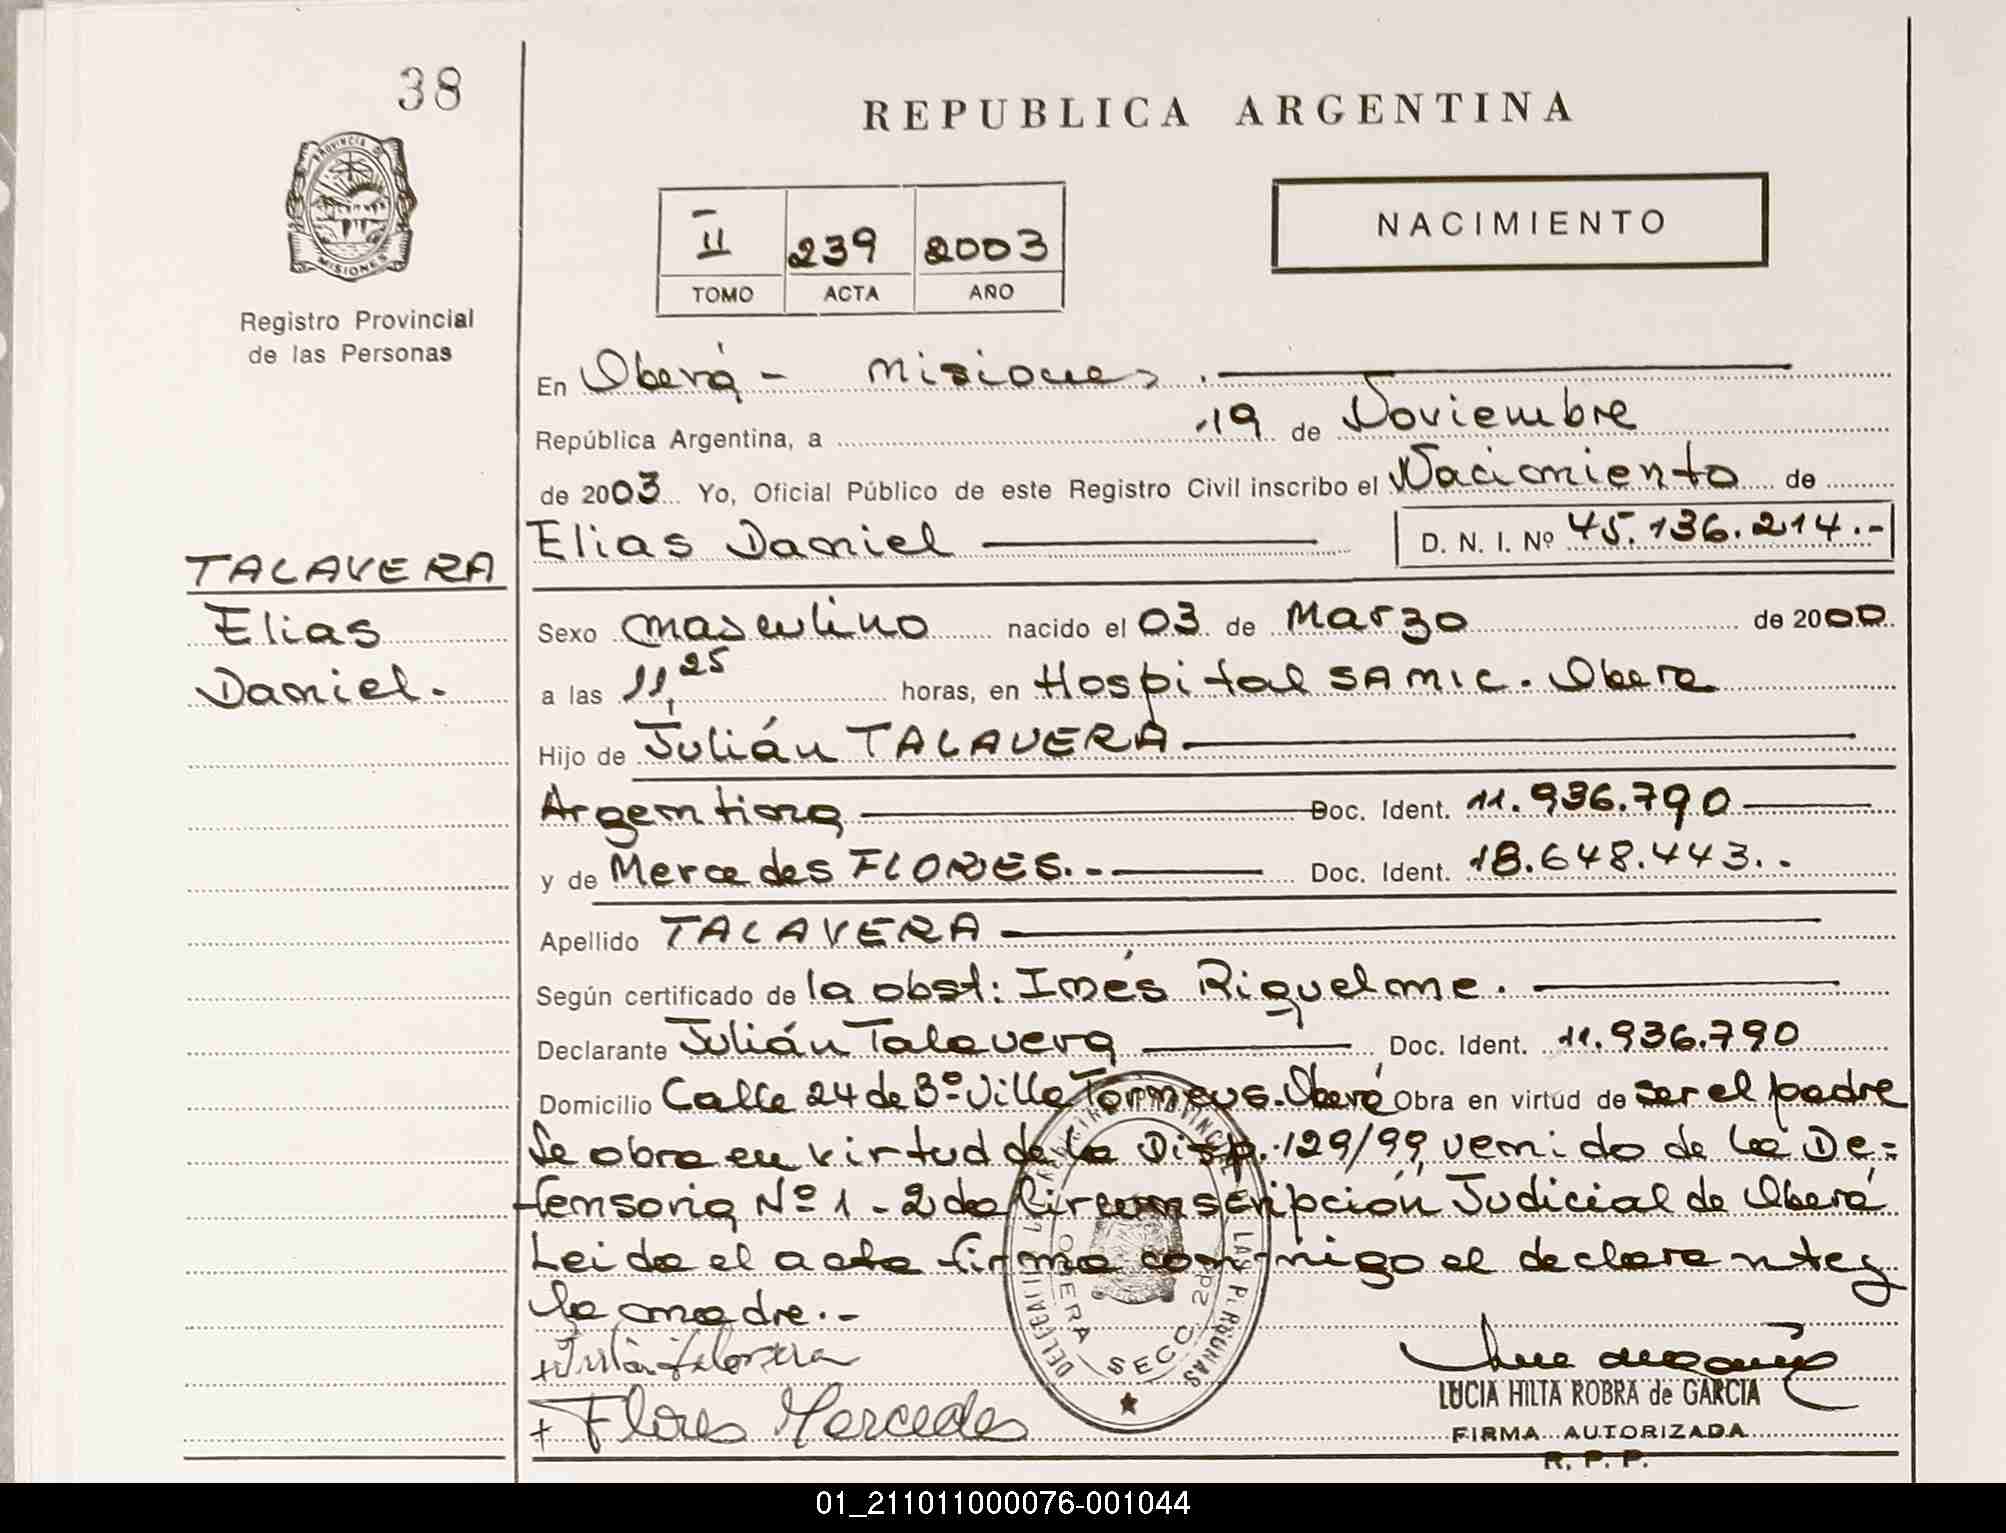 38
REPUBLICA ARGENTINA
PROVINCIA DE
MISIONES
Registro Provincial
de las Personas
II 239 2003
TOMO ACTA AÑO
NACIMIENTO
En Oberá - Misiones.
República Argentina, a 19 de Noviembre
de 2003 Yo, Oficial Público de este Registro Civil inscribo el Nacimiento de
Elias Daniel D. N. I. Nº 45.136.214.-
TALAVERA
Elias
Daniel.
Sexo masculino nacido el 03 de Marzo de 2000
a las 11,25 horas, en Hospital SAMIC. Obera
Hijo de Julián TALAVERA
Argentina Doc. Ident. 11.936.790
y de Mercedes FLORES.- Doc. Ident. 18.648.443..
Apellido TALAVERA
Según certificado de la obst: Inés Riquelme.
Declarante Julián Talavera Doc. Ident. 11.936.790
Domicilio Calle 24 de Bº Villa Torneus. Oberá Obra en virtud de ser el padre
Se obra en virtud de la Disp. 129/99, venido de la De=
fensoria Nº 1 - 2da Circunscripción Judicial de Oberá
Leida el acta firma conmigo el declarante y
la madre.-
+ Julián Talavera
+ Flores Mercedes
SECC. 2da
LUCIA HILTA ROBRA de GARCIA
FIRMA AUTORIZADA
R. P. P.
01_211011000076-001044